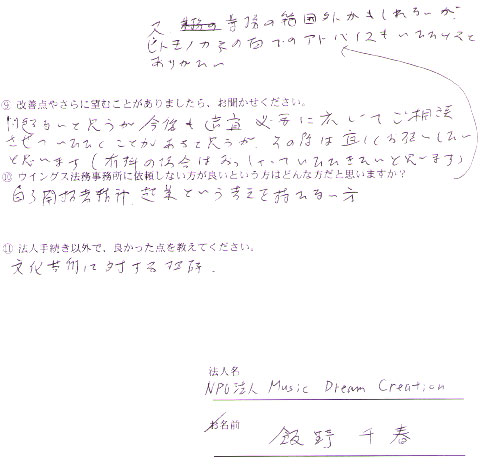 又 業務の専務の範囲外かもしれないが、
ヒトモノカネの面でのアドバイスもいただけると
ありがたい
⑨ 改善点やさらに望むことがありましたら、お聞かせください。
問題ないと思うが今後も適宜必要に応じてご相談
させていただくことがあると思うが、その際は宜しくお願いしたい
と思います(有料の場合はおっしゃっていただきたいと思います)
⑩ ウイングス法務事務所に依頼しない方が良いという方はどんな方だと思いますか?
自分で開拓 起業という考えを持たない方
⑪ 法人手続き以外で、良かった点を教えてください。
文化芸術に対する理解。
法人名
NPO法人 Music Dream Creation
お名前
飯野 千春